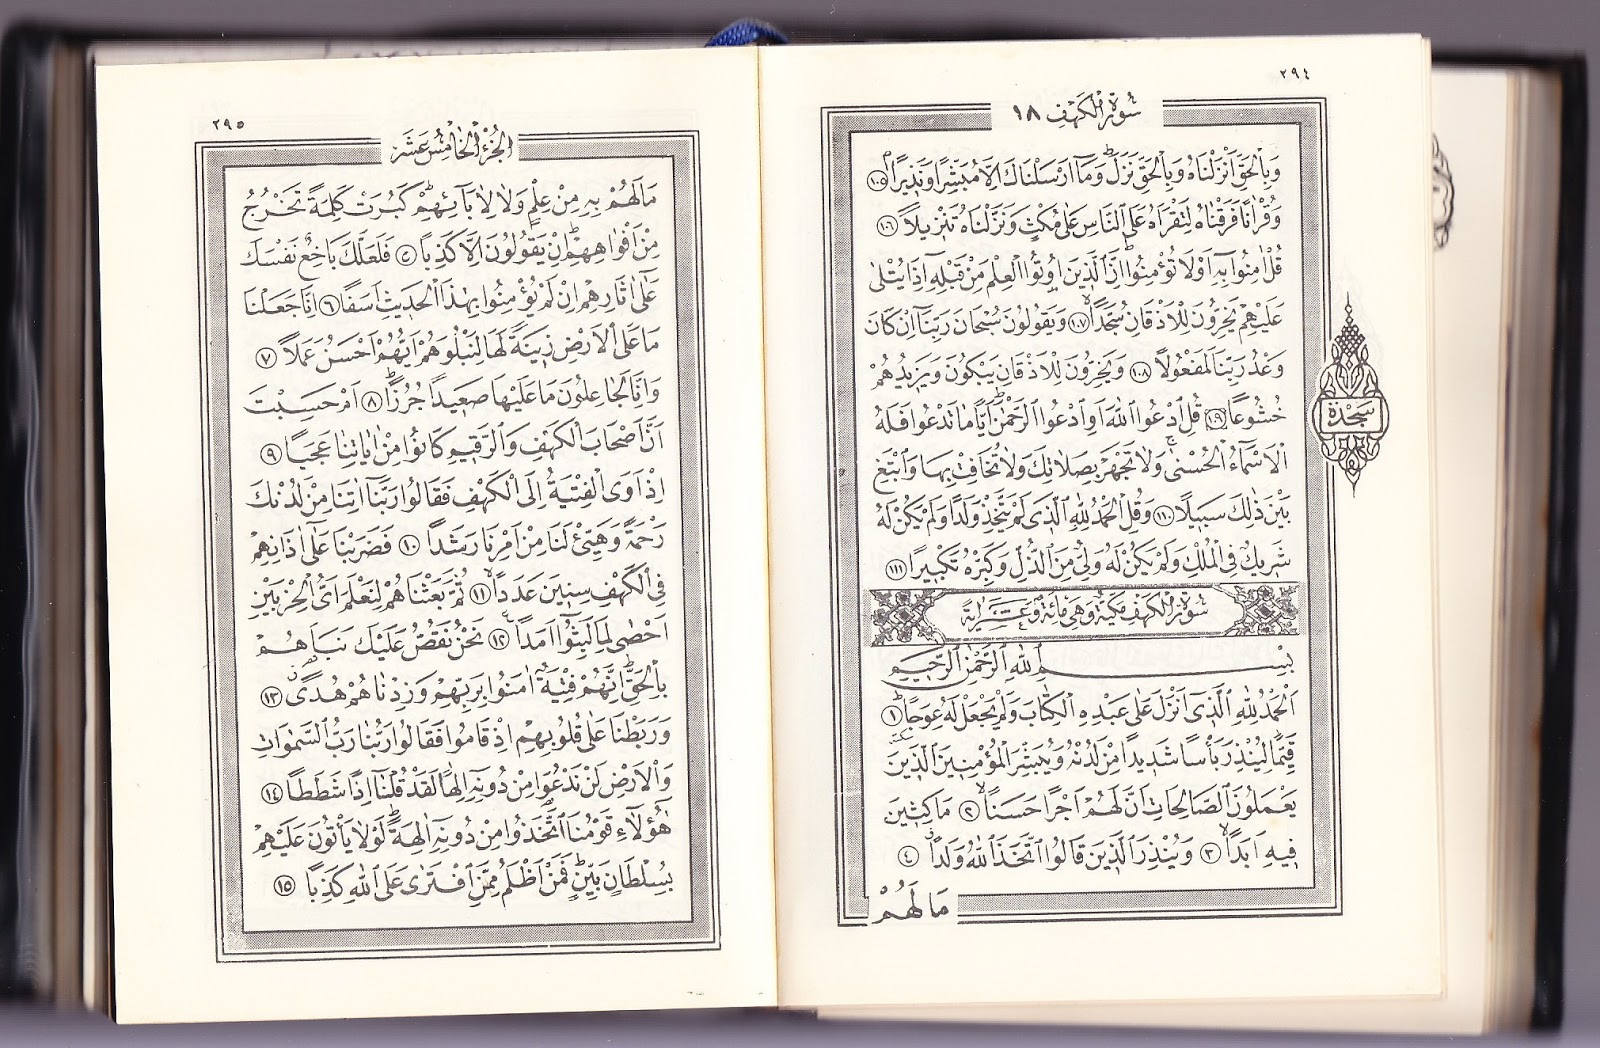 ٢٩٤
سُورَةُ الْكَهْفِ ١٨
وَبِالْحَقِّ اَنْزَلْنَاهُ وَبِالْحَقِّ نَزَلَ وَمَٓا اَرْسَلْنَاكَ اِلَّا مُبَشِّرًا وَنَذِيرًا ١٠٥
وَقُرْاٰنًا فَرَقْنَاهُ لِتَقْرَاَهُ عَلَى النَّاسِ عَلٰى مُكْثٍ وَنَزَّلْنَاهُ تَنْزِيلًا ١٠٦
قُلْ اٰمِنُوا بِهِٓ اَوْ لَا تُؤْمِنُوا اِنَّ الَّذِينَ اُوتُوا الْعِلْمَ مِنْ قَبْلِهِٓ اِذَا يُتْلٰى
عَلَيْهِمْ يَخِرُّونَ لِلْاَذْقَانِ سُجَّدًا ١٠٧ وَيَقُولُونَ سُبْحَانَ رَبِّنَٓا اِنْ كَانَ
وَعْدُ رَبِّنَا لَمَفْعُولًا ١٠٨ وَيَخِرُّونَ لِلْاَذْقَانِ يَبْكُونَ وَيَزِيدُهُمْ
خُشُوعًا ١٠٩ قُلِ ادْعُوا اللّٰهَ اَوِ ادْعُوا الرَّحْمٰنَ اَيًّا مَا تَدْعُوا فَلَهُ
الْاَسْمَٓاءُ الْحُسْنٰى وَلَا تَجْهَرْ بِصَلَاتِكَ وَلَا تُخَافِتْ بِهَا وَابْتَغِ
بَيْنَ ذٰلِكَ سَبِيلًا ١١٠ وَقُلِ الْحَمْدُ لِلّٰهِ الَّذِى لَمْ يَتَّخِذْ وَلَدًا وَلَمْ يَكُنْ لَهُ
شَرِيكٌ فِى الْمُلْكِ وَلَمْ يَكُنْ لَهُ وَلِىٌّ مِنَ الذُّلِّ وَكَبِّرْهُ تَكْبِيرًا ١١١
سُورَةُ الْكَهْفِ مَكِّيَّةٌ وَهِىَ مِائَةٌ وَعَشَرُ اٰيَةً
بِسْمِ اللّٰهِ الرَّحْمٰنِ الرَّحِيمِ
اَلْحَمْدُ لِلّٰهِ الَّذِٓى اَنْزَلَ عَلٰى عَبْدِهِ الْكِتَابَ وَلَمْ يَجْعَلْ لَهُ عِوَجًا ١
قَيِّمًا لِيُنْذِرَ بَأْسًا شَدِيدًا مِنْ لَدُنْهُ وَيُبَشِّرَ الْمُؤْمِنِينَ الَّذِينَ
يَعْمَلُونَ الصَّالِحَاتِ اَنَّ لَهُمْ اَجْرًا حَسَنًا ٢ مَاكِثِينَ
فِيهِ اَبَدًا ٣ وَيُنْذِرَ الَّذِينَ قَالُوا اتَّخَذَ اللّٰهُ وَلَدًا ٤
مَا لَهُمْ
سَجْدَة
٢٩٥
اَلْجُزْءُ الْخَامِسُ عَشَرَ
مَا لَهُمْ بِهِ مِنْ عِلْمٍ وَلَا لِاٰبَٓائِهِمْ كَبُرَتْ كَلِمَةً تَخْرُجُ
مِنْ اَفْوَاهِهِمْ اِنْ يَقُولُونَ اِلَّا كَذِبًا ٥ فَلَعَلَّكَ بَاخِعٌ نَفْسَكَ
عَلٰٓى اٰثَارِهِمْ اِنْ لَمْ يُؤْمِنُوا بِهٰذَا الْحَدِيثِ اَسَفًا ٦ اِنَّا جَعَلْنَا
مَا عَلَى الْاَرْضِ زِينَةً لَهَا لِنَبْلُوَهُمْ اَيُّهُمْ اَحْسَنُ عَمَلًا ٧
وَاِنَّا لَجَاعِلُونَ مَا عَلَيْهَا صَعِيدًا جُرُزًا ٨ اَمْ حَسِبْتَ
اَنَّ اَصْحَابَ الْكَهْفِ وَالرَّقِيمِ كَانُوا مِنْ اٰيَاتِنَا عَجَبًا ٩
اِذْ اَوَى الْفِتْيَةُ اِلَى الْكَهْفِ فَقَالُوا رَبَّنَٓا اٰتِنَا مِنْ لَدُنْكَ
رَحْمَةً وَهَيِّئْ لَنَا مِنْ اَمْرِنَا رَشَدًا ١٠ فَضَرَبْنَا عَلٰٓى اٰذَانِهِمْ
فِى الْكَهْفِ سِنِينَ عَدَدًا ١١ ثُمَّ بَعَثْنَاهُمْ لِنَعْلَمَ اَىُّ الْحِزْبَيْنِ
اَحْصٰى لِمَا لَبِثُٓوا اَمَدًا ١٢ نَحْنُ نَقُصُّ عَلَيْكَ نَبَاَهُمْ
بِالْحَقِّ اِنَّهُمْ فِتْيَةٌ اٰمَنُوا بِرَبِّهِمْ وَزِدْنَاهُمْ هُدًى ١٣
وَرَبَطْنَا عَلٰى قُلُوبِهِمْ اِذْ قَامُوا فَقَالُوا رَبُّنَا رَبُّ السَّمٰوَاتِ
وَالْاَرْضِ لَنْ نَدْعُوَا مِنْ دُونِهِٓ اِلٰهًا لَقَدْ قُلْنَٓا اِذًا شَطَطًا ١٤
هٰٓؤُلَٓاءِ قَوْمُنَا اتَّخَذُوا مِنْ دُونِهِٓ اٰلِهَةً لَوْلَا يَأْتُونَ عَلَيْهِمْ
بِسُلْطَانٍ بَيِّنٍ فَمَنْ اَظْلَمُ مِمَّنِ افْتَرٰى عَلَى اللّٰهِ كَذِبًا ١٥